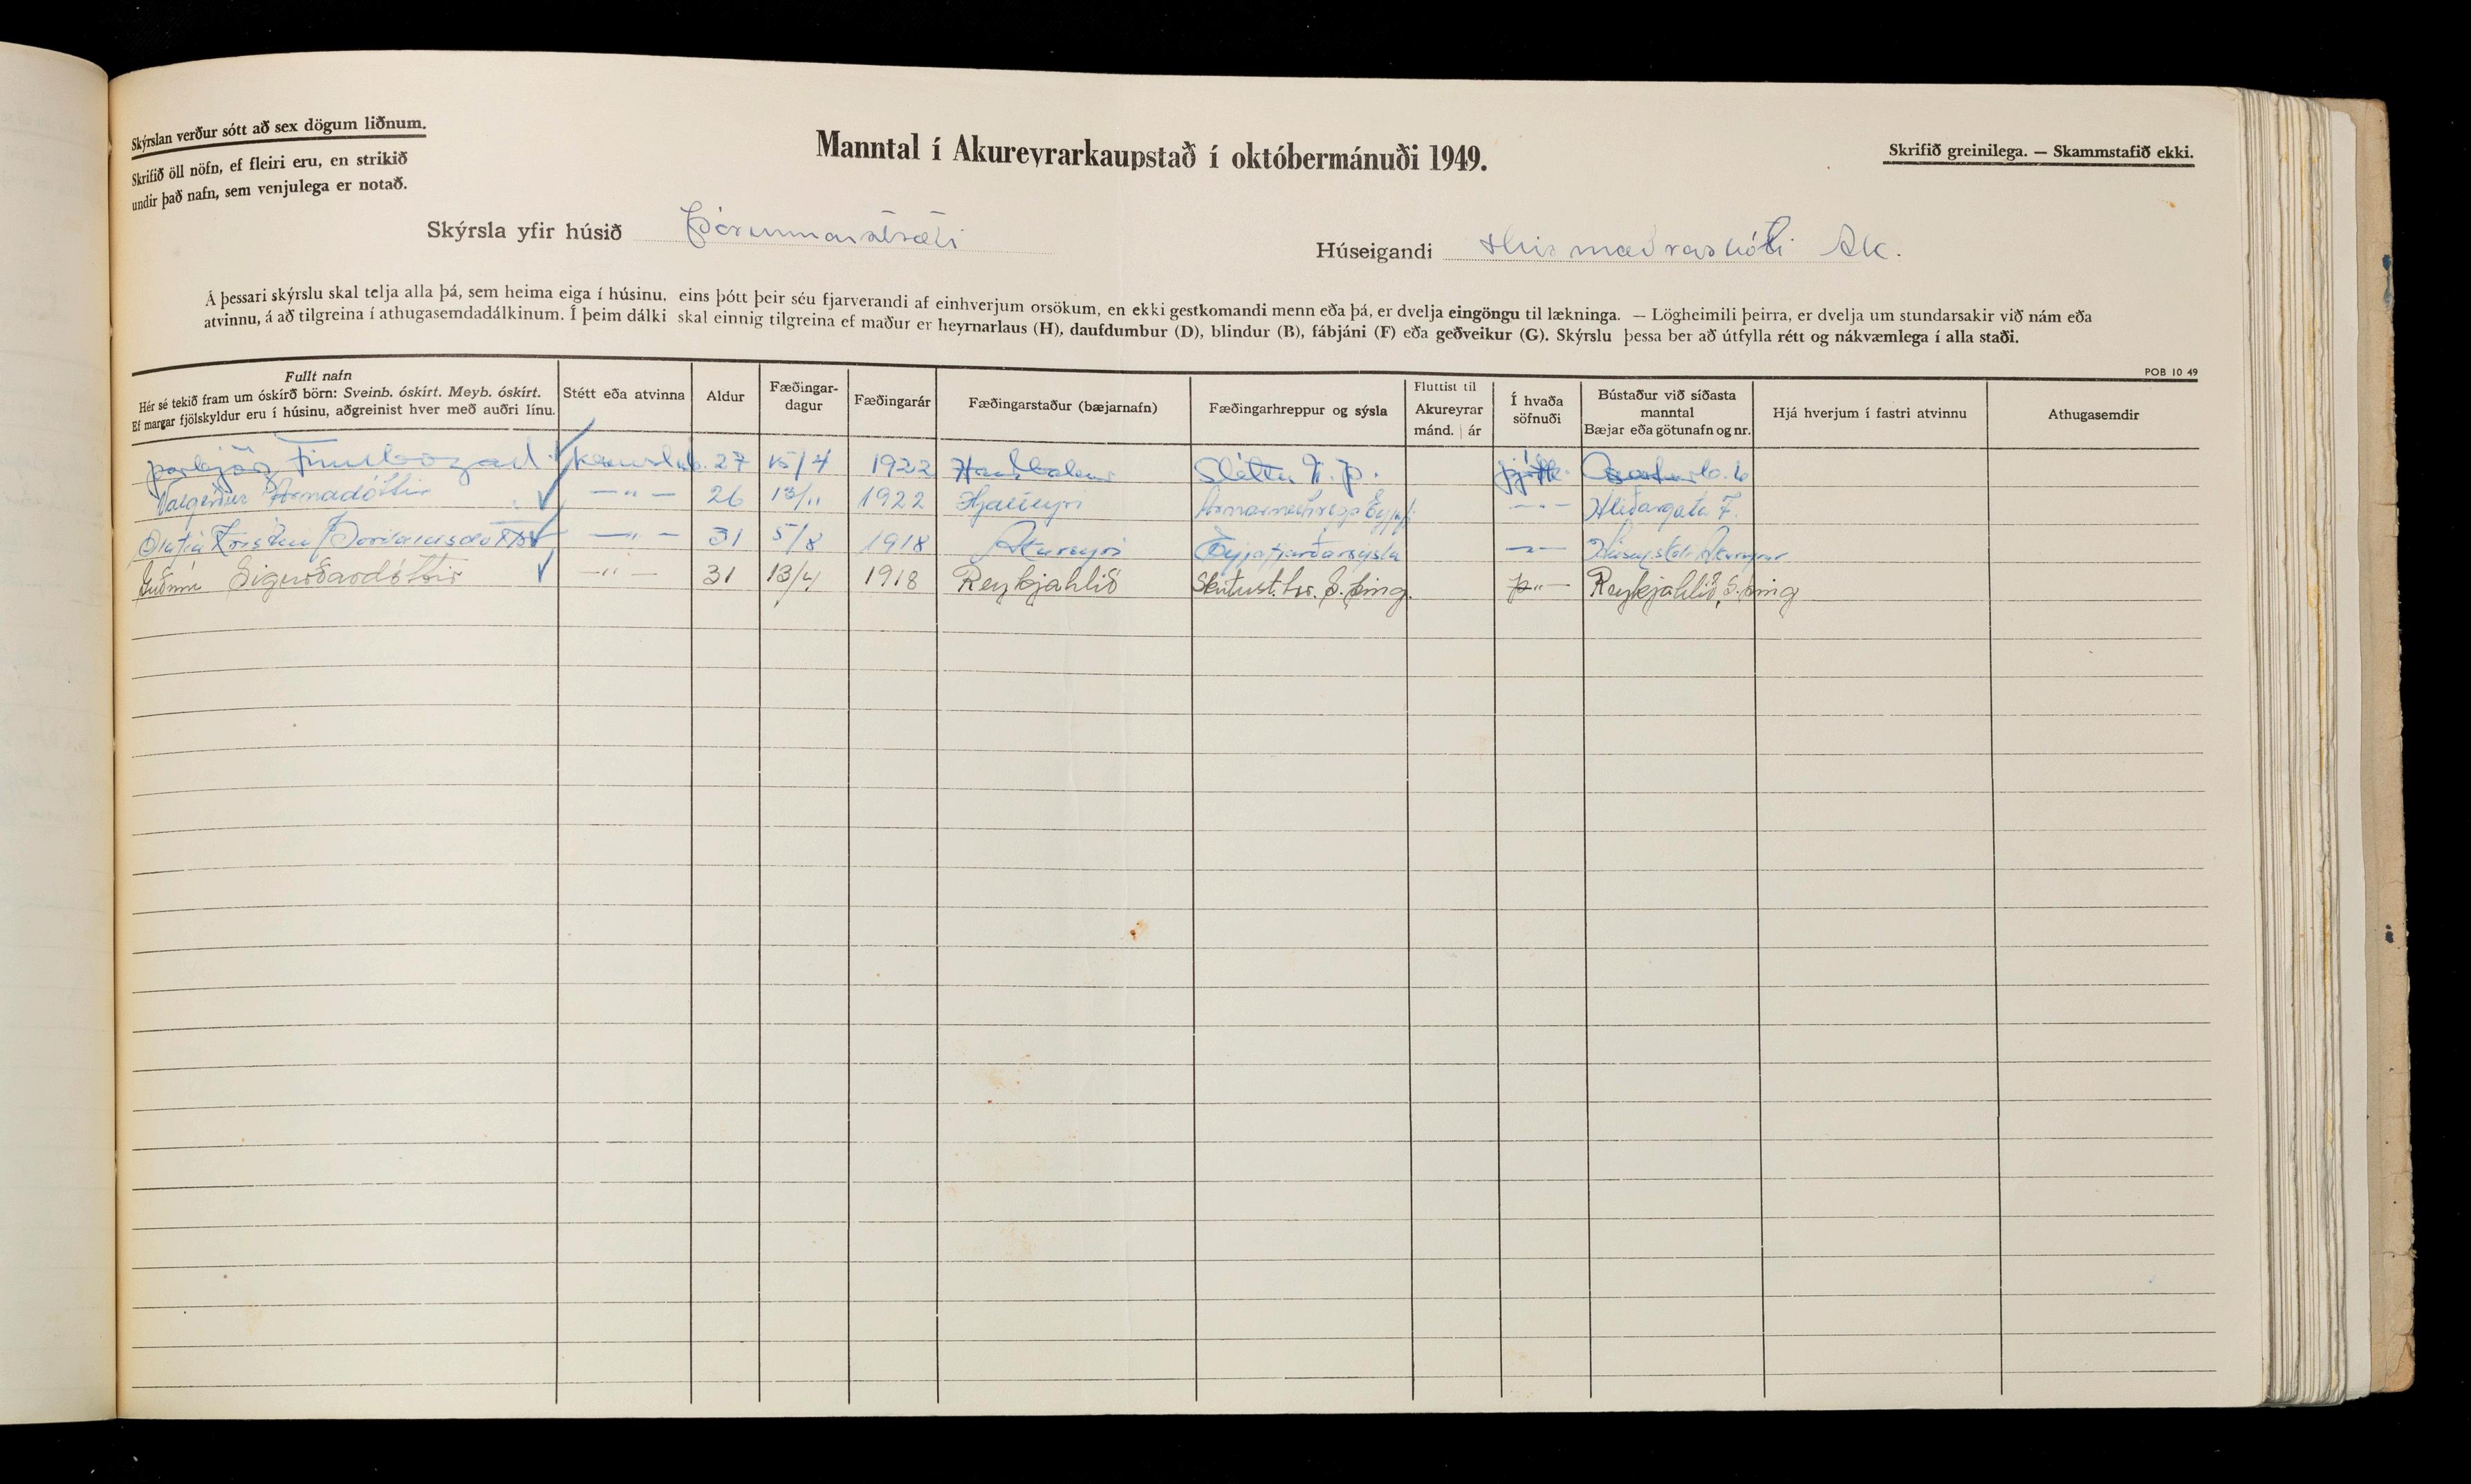 Skýrslan verður sótt að sex dögum liðnum.
Skrifið öll nöfn, ef fleiri eru, en strikið
undir það nafn, sem venjulega er notað.
Manntal í Akureyrarkaupstað í októbermánuði 1949.
Skrifið greinilega. — Skammstafið ekki.
Skýrsla yfir húsið Þórunnarstræti
Húseigandi Húsmæðraskóli Ak.
Á þessari skýrslu skal telja alla þá, sem heima eiga í húsinu, eins þótt þeir séu fjarverandi af einhverjum orsökum, en ekki gestkomandi menn eða þá, er dvelja eingöngu til lækninga. — Lögheimili þeirra, er dvelja um stundarsakir við nám eða
atvinnu, á að tilgreina í athugasemdadálkinum. Í þeim dálki skal einnig tilgreina ef maður er heyrnarlaus (H), daufdumbur (D), blindur (B), fábjáni (F) eða geðveikur (G). Skýrslu þessa ber að útfylla rétt og nákvæmlega í alla staði.
POB 10 49
Fullt nafn
Hér sé tekið fram um óskírð börn: Sveinb. óskírt. Meyb. óskírt.
Ef margar fjölskyldur eru í húsinu, aðgreinist hver með auðri línu.
Stétt eða atvinna
Aldur
Fæðingar-
dagur
Fæðingarár
Fæðingarstaður (bæjarnafn)
Fæðingarhreppur og sýsla
Fluttist til
Akureyrar
mánd. ár
Í hvaða
söfnuði
Bústaður við síðasta
manntal
Bæjar eða götunafn og nr.
Hjá hverjum í fastri atvinnu
Athugasemdir
Þorbjörg Finnbogad. 27 15/4 1922 Sléttu N. Þ. þjóðk.
Valgerður Árnadóttir — " — 26 13/11 1922 Hjalteyri Arnarneshreppi Eyjaf. — " — Hlíðargata 7.
Kristín Þorvaldsdóttir — " — 31 5/8 1918 Akureyri Eyjafjarðarsýsla — " — Húsm.sk. Akureyrar
Guðrún Sigurðardóttir — " — 31 13/4 1918 Reykjahlíð Skútust.hr. S. Þing. — " — Reykjahlíð, S. Þing